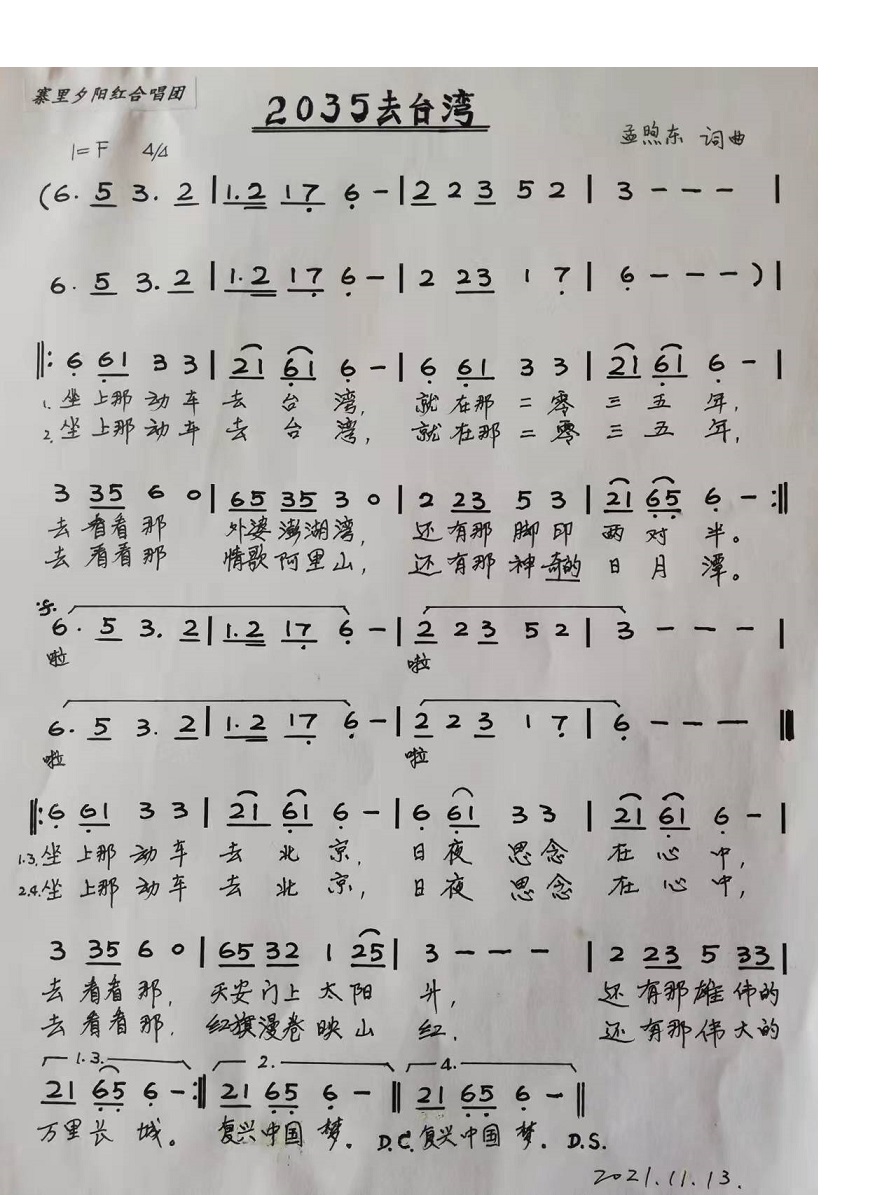 寨里夕阳红合唱团
2035去台湾
孟煦东 词曲
1=F 4/4
(6. 5 3. 2 | 1.2 17 6 - | 2 2 3 5 2 | 3 - - - |
6. 5 3. 2 | 1.2 17 6 - | 2 23 1 7 | 6 - - - ) |
‖: 6 61 3 3 | 21 61 6 - | 6 61 3 3 | 21 61 6 - |
1. 坐上那动车去台湾, 就在那二零三五年,
2. 坐上那动车去台湾, 就在那二零三五年,
3 35 6 0 | 65 35 3 0 | 2 23 5 3 | 21 65 6 - :‖
去看看那 外婆澎湖湾, 还有那脚印两对半。
去看看那 情歌阿里山, 还有那神奇的日月潭。
6. 5 3. 2 | 1.2 17 6 - | 2 2 3 5 2 | 3 - - - |
啦 啦
6. 5 3. 2 | 1.2 17 6 - | 2 2 3 1 7 | 6 - - - ‖
啦 啦
‖: 6 61 3 3 | 21 61 6 - | 6 61 3 3 | 21 61 6 - |
1.3. 坐上那动车去北京, 日夜思念在心中,
2.4. 坐上那动车去北京, 日夜思念在心中,
3 35 6 0 | 65 32 1 25 | 3 - - - | 2 23 5 33 |
去看看那, 天安门上太阳升, 还有那雄伟的
去看看那, 红旗漫卷映山红. 还有那伟大的
1.3. 2. 4.
21 65 6 - :‖ 21 65 6 - ‖ 21 65 6 - ‖
万里长城。 复兴中国梦. D.C. 复兴中国梦. D.S.
2021.11.13.